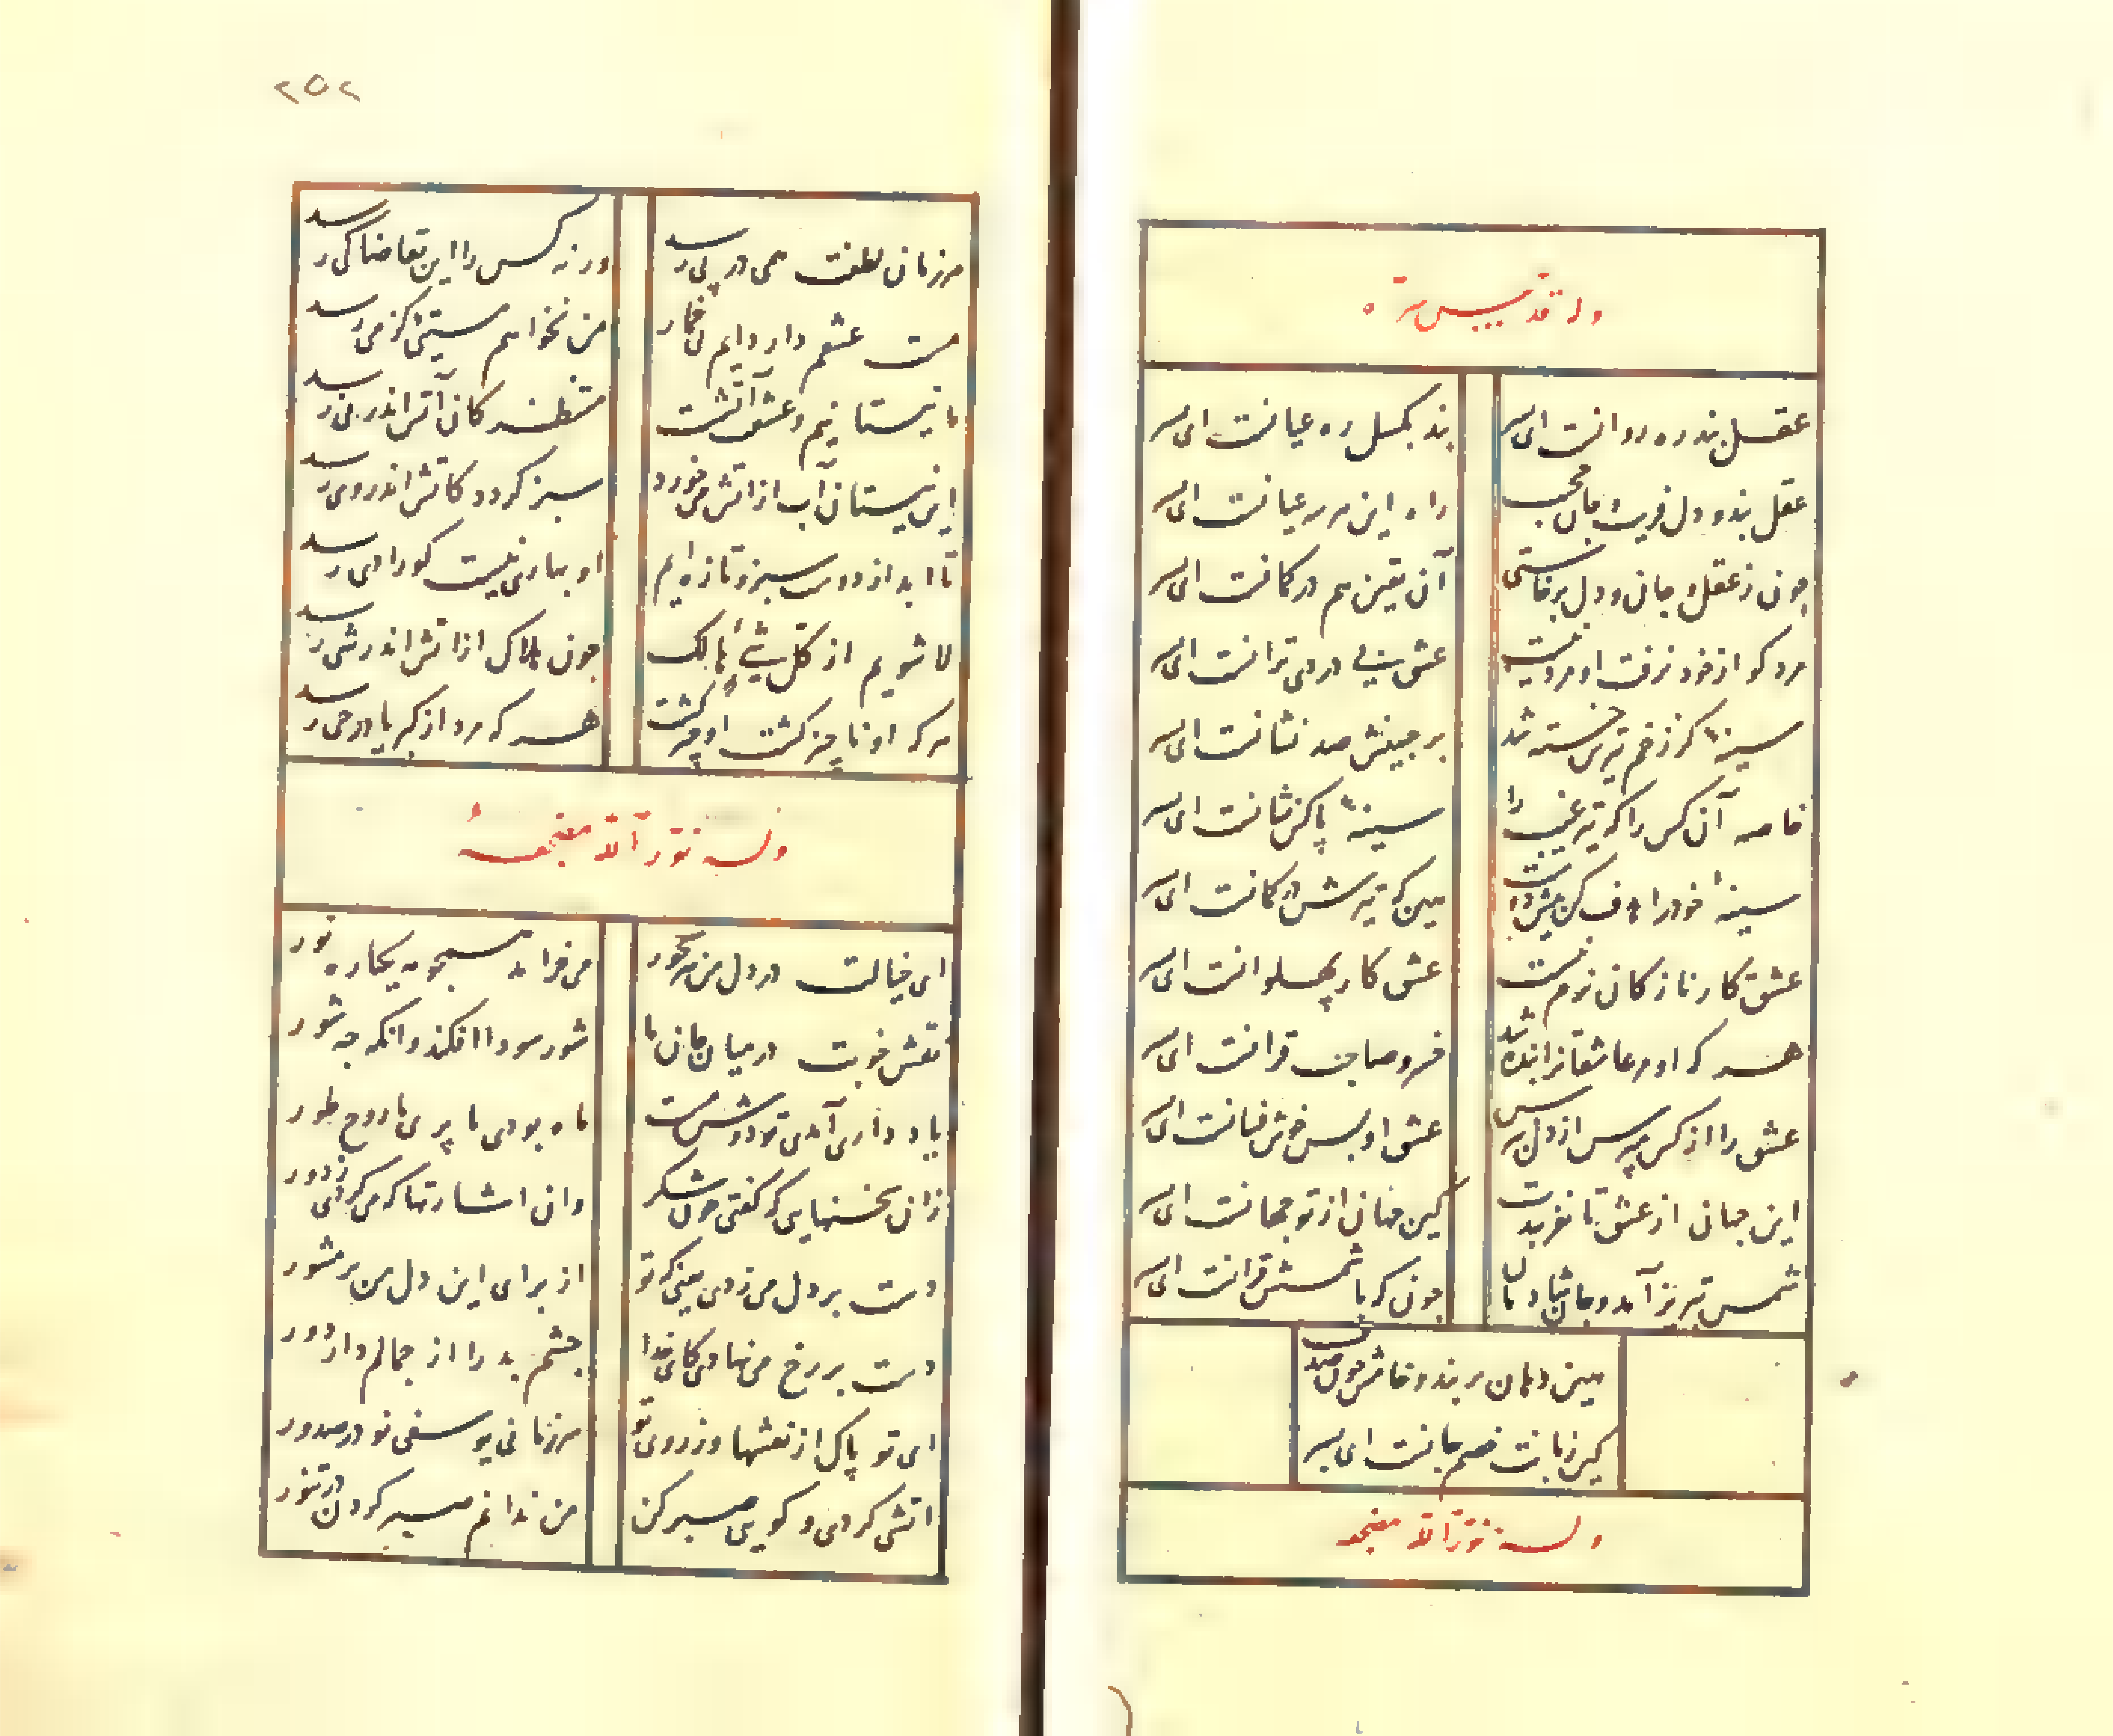 وله قدس سره
عقل بند ره روانست ای پسر
بند بگسل ره عیانست ای پسر
عقل بند و دل فریب و جان حجیب
راه ازین هر سه عیانست ای پسر
چون ز عقل و جان و دل برخاستی
آن یقین هم در کمانست ای پسر
مرد کو از خود نرفت او مرد نیست
عشق بی درد ترانست ای پسر
سینهٔ کز زخم تیرش خسته شد
بر جبینش صد نشانست ای پسر
خاصه آن کس را که تیر غیب را
سینهٔ پاکش نشانست ای پسر
سینهٔ خود را هدف کن پیش دوست
هین که تیرش در کمانست ای پسر
عشق کار نازکان نرم نیست
عشق کار پهلوانست ای پسر
هر که او مر عاشقانرا بنده شد
خسرو صاحب قرانست ای پسر
عشق را از کس مپرس از دل بپرس
عشق او بس خوش فسانست ای پسر
این جهان از عشق تا نفریبدت
کین جهان از تو جهانست ای پسر
شمس تبریز آمد و جان شادمان
چون که با شمسش قرانست ای پسر
هین دهان بر بند و خامش چون صدف
کین زبانت خصم جانست ای پسر
وله نور الله مضجعه
۲۵۲
هر زمان لطفت همی در پی رسد
ور نه کس را این تقاضا کی رسد
مست عشقم دار دایم بی خمار
من نخواهم مستیی کز می رسد
ما نیستانیم و عشقت آتشست
منتظر کان آتش اندر نی رسد
این نیستان آب از آتش می خورد
سبز گردد کاتش اندر وی رسد
تا ابد از دوست سبز و تازه ایم
او بهاری نیست کورا دی رسد
لا شویم از کل شیء هالک
چون هلاک از آتش اندر شی رسد
هر که او ناچیز گشت او چیز گشت
هر که مرد از کبریا در حی رسد
وله نور الله مضجعه
ای خیالت در دل من هر سحور
می خرامد همچو مه یکباره نور
نقش خوبت در میان جان ما
شور سودا افکند وانکه چه شور
یاد داری آمدی تو دوش مست
ماه بودی یا پری یا روح طور
زان سخنهایی که گفتی چون شکر
وان اشارتها که می کردی ز دور
دست بر دل می زدی یعنی که تو
از برای این دل من بر مشور
دست بر رخ می نهادی کای خدا
چشم بد را از جمالم دار دور
ای تو پاک از نقشها وز روی تو
هر زمانی یوسفی نو در صدور
آتشی کردی و گویی صبر کن
من ندانم صبر کردن در تنور